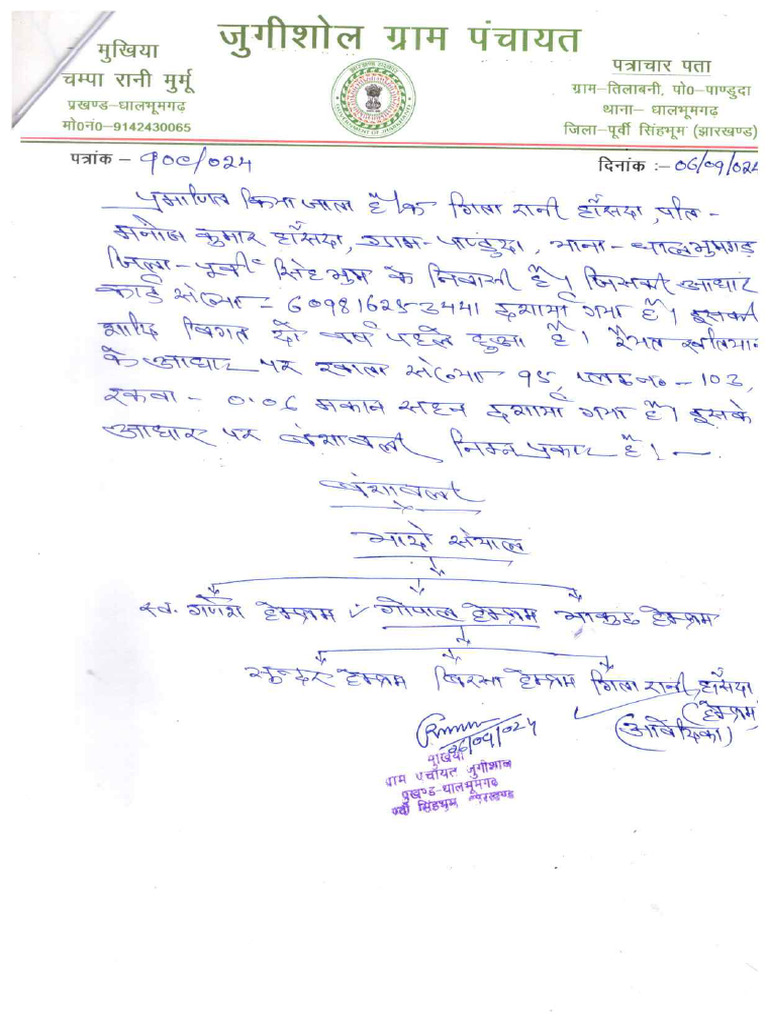 जुगीशोल ग्राम पंचायत
मुखिया
चम्पा रानी मुर्मू
प्रखण्ड-धालभूमगढ़
मो0नं0-9142430065
पत्राचार पता
ग्राम-तिलाबनी, पो0-पाण्डुदा
थाना- धालभूमगढ़
जिला-पूर्वी सिंहभूम (झारखण्ड)
पत्रांक - 100/024
दिनांक :- 06/09/024
प्रमाणित किया जाता है कि गिता रानी हाँसदा, पति-
मनोज कुमार हाँसदा, ग्राम-पाण्डुदा, थाना-धालभुमगड़
जिला-पूर्वी सिंहभुम के निवासी है। जिसकी आधार
कार्ड संख्या = 609816253441 दर्शाया गया है। इसकी
शादि विगत दो वर्ष पहले हुआ है। रैयत खतियान
के आधार पर खाता संख्या 95, प्लाट नं० - 103,
रकवा - 0.06 मकान सहन दर्शाया गया है। इसके
आधार पर बंशाबली निम्न प्रकार है।-
बंशाबली
भादो संथाल
स्व. गणेश हेम्ब्रम गोपाल हेम्ब्रम हेम्ब्रम
सुन्दर हेम्ब्रम बिरसा हेम्ब्रम गिता रानी हाँसदा
(हेम्ब्रम)
(आवेदिका)
06/09/024
मुखिया
ग्राम पंचायत जुगीशोल
प्रखण्ड-धालभूमगढ़
पूर्वी सिंहभूम झारखण्ड